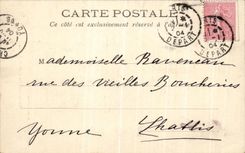 CARTE POSTALE
Ce côté est exclusivement réservé à l'adresse
04
DÉPART
Mademoiselle Raveneau
rue des Vieilles Boucheries
Chablis
Yonne